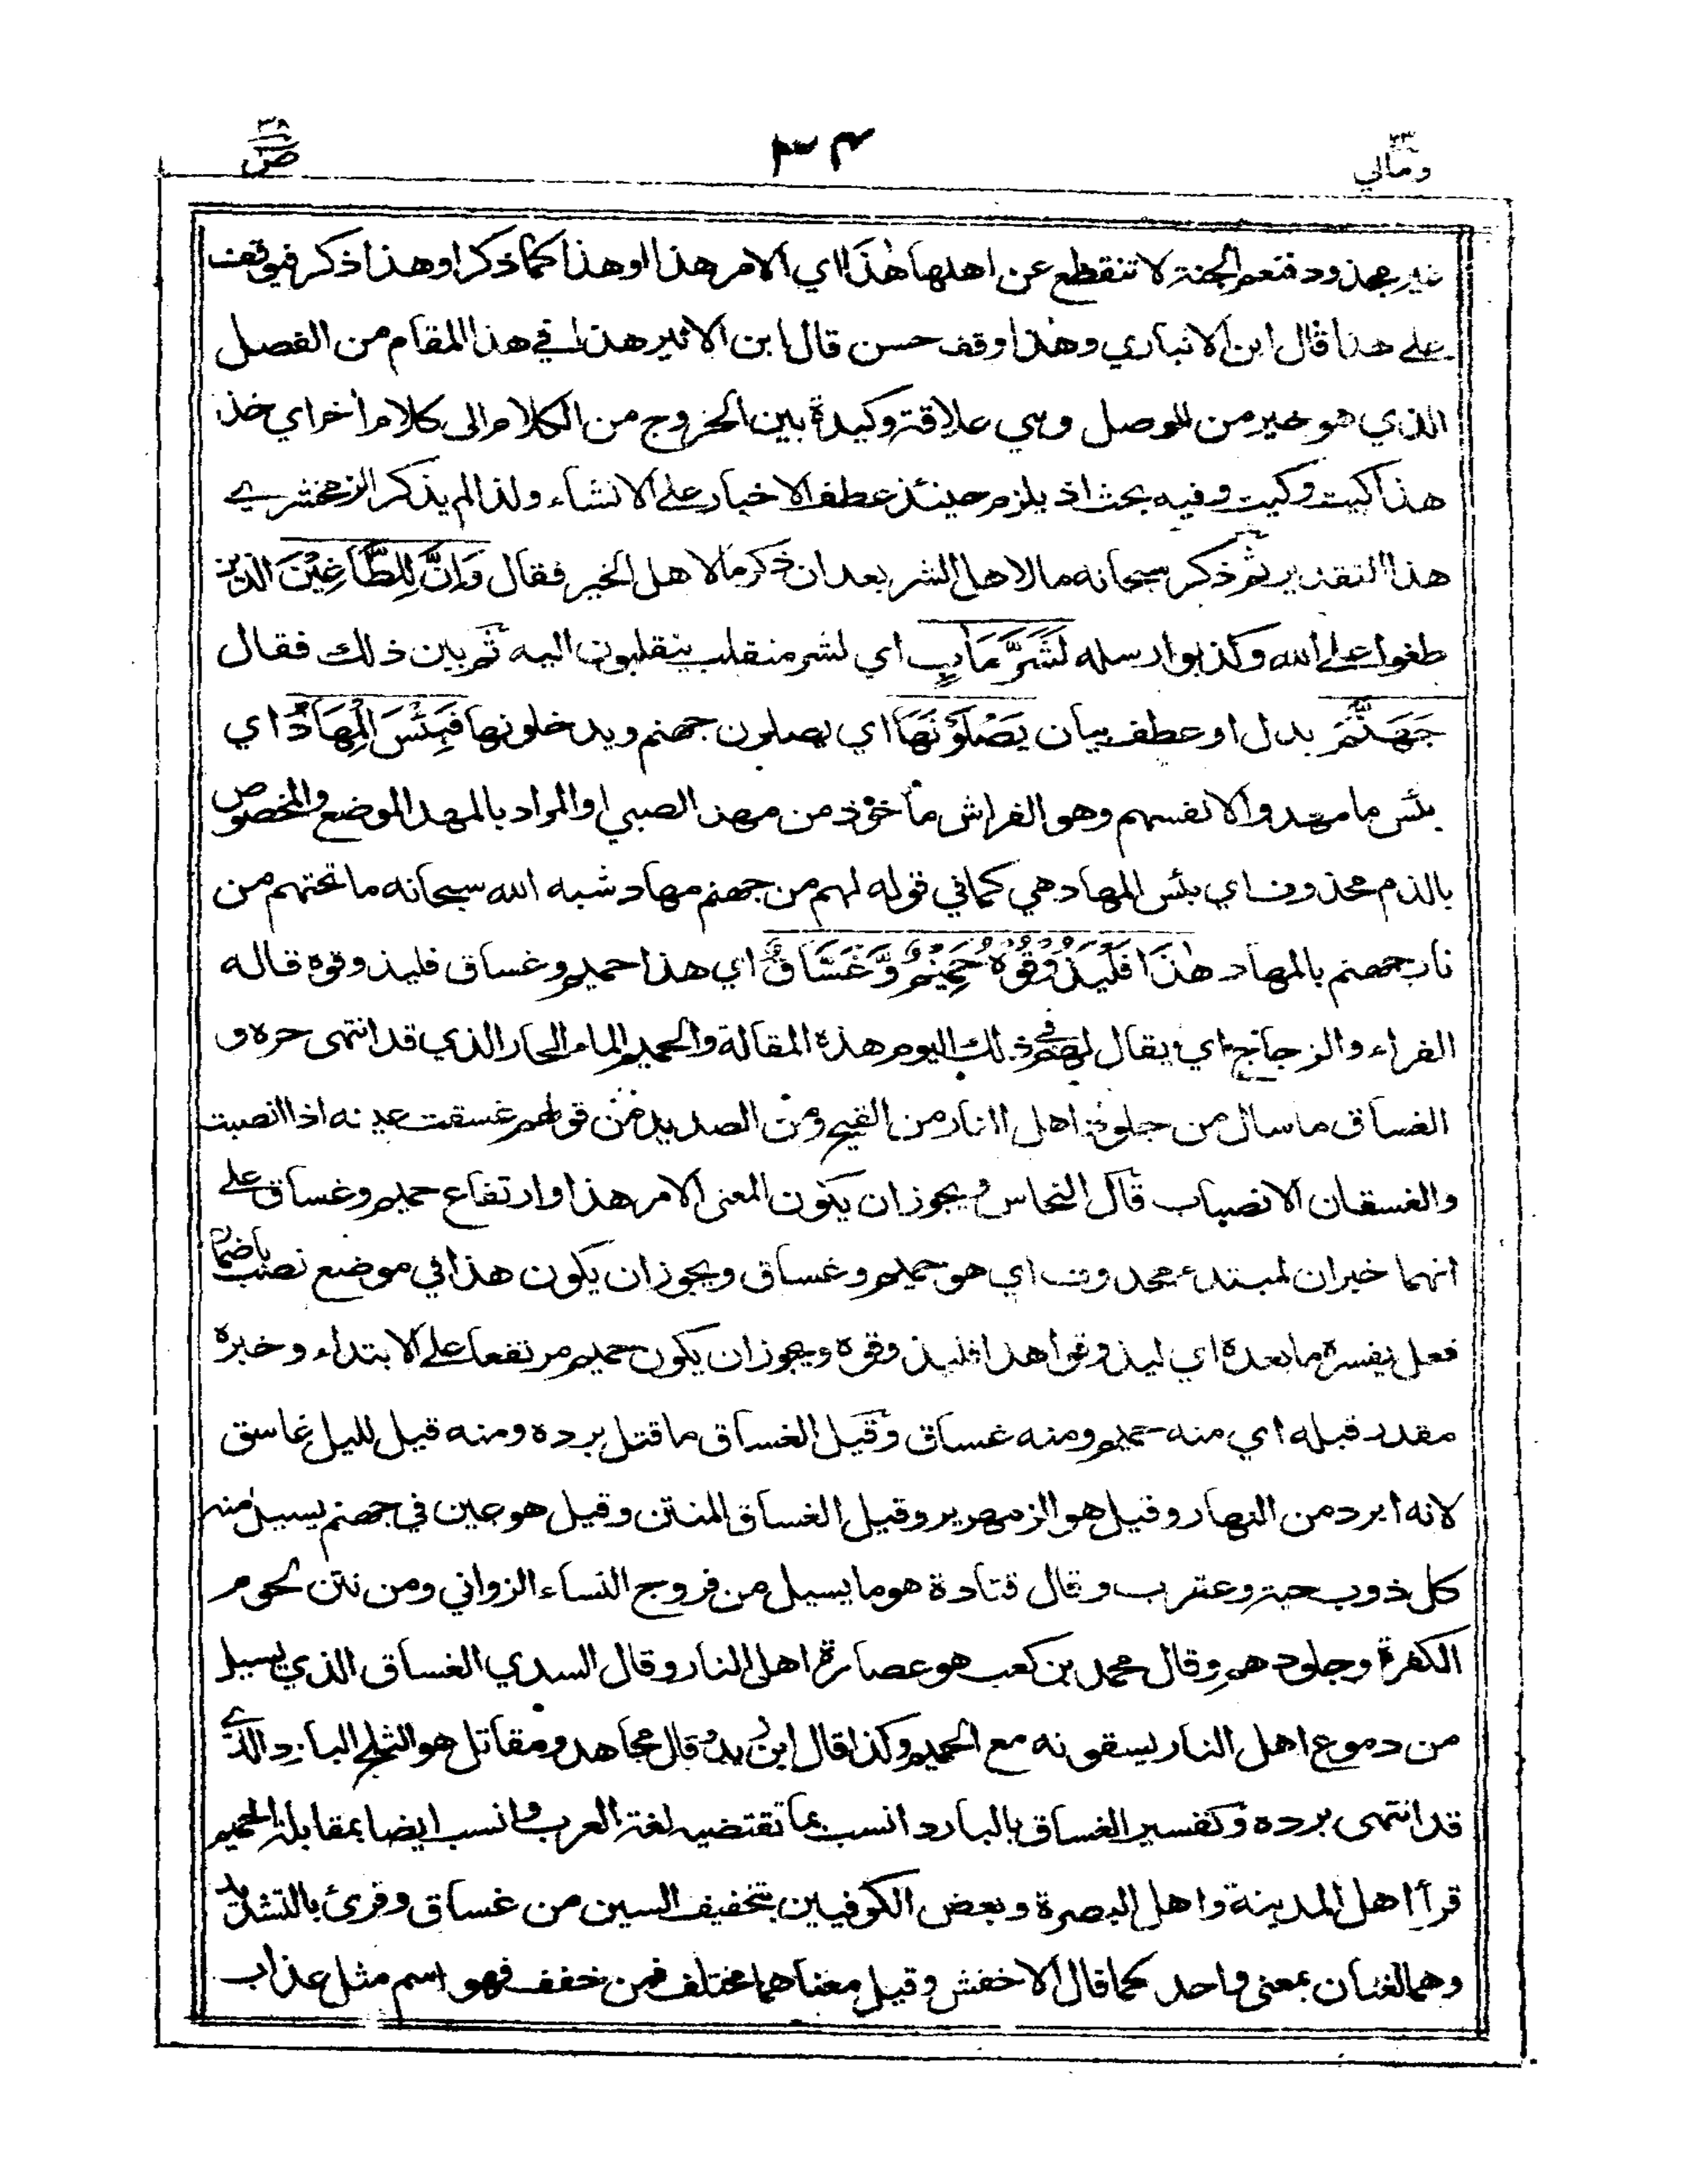 ومالي ٢٣
٣٤
ص ٣٨
غير مجذوذ فنعم الجنة لا تنقطع عن اهلها هٰذَا اي الامر هذا او هذا كما ذكر او هذا ذكر فيوقف
على هذا قال ابن الانباري وهذا وقف حسن قال ابن الاثير هذا في هذا المقام من الفصل
الذي هو خير من الوصل وهي علاقة وكيدة بين الخروج من الكلام الى كلام اخر اي خذ
هذا كيت وكيت وفيه بحث اذ يلزم حينئذ عطف الاخبار على الانشاء ولذا لم يذكر الزمخشري
هذا التقدير ثم ذكر سبحانه ما لاهل الشر بعد ان ذكر ما لاهل الخير فقال وَاِنَّ لِلطَّاغِيْنَ الذين
طغوا على الله وكذبوا رسله لَشَرَّ مَاٰبٍ اي لشر منقلب ينقلبون اليه ثم بين ذلك فقال
جَهَنَّمَ بدل او عطف بيان يَصْلَوْنَهَا اي يصلون جهنم ويدخلونها فَبِئْسَ الْمِهَادُ اي
بئس ما مهدوا لانفسهم وهو الفراش مأخوذ من مهد الصبي او المراد بالمهد الموضع والمخصوص
بالذم محذوف اي بئس المهاد هي كما في قوله لهم من جهنم مهاد شبه الله سبحانه ما تحتهم من
نار جهنم بالمهاد هٰذَا فَلْيَذُوْقُوْهُ حَمِيْمٌ وَّغَسَّاقٌ اي هذا حميم وغساق فليذوقوه قاله
الفراء والزجاج اي يقال لهم في ذلك اليوم هذه المقالة والحميم الماء الحار الذي قد انتهى حره و
الغساق ما سال من جلود اهل النار من القيح ومن الصديد من قولهم غسقت عينه اذا انصبت
والغسقان الانصباب قال النحاس ويجوز ان يكون المعنى الامر هذا وارتفاع حميم وغساق على
انهما خبران لمبتدء محذوف اي هو حميم وغساق ويجوز ان يكون هذا في موضع نصب باضمار
فعل يفسره ما بعده اي ليذوقوا هذا فليذوقوه ويجوز ان يكون حميم مرتفعا على الابتداء وخبره
مقدر قبله اي منه حميم ومنه غساق وقيل الغساق ما قتل برده ومنه قيل لليل غاسق
لانه ابرد من النهار وقيل هو الزمهرير وقيل الغساق المنتن وقيل هو عين في جهنم يسيل منه
كل ذوب حية وعقرب وقال قتادة هو ما يسيل من فروج النساء الزواني ومن نتن لحوم
الكفرة وجلودهم وقال محمد بن كعب هو عصارة اهل النار وقال السدي الغساق الذي يسيل
من دموع اهل النار يسقونه مع الحميم وكذا قال ابن زيد وقال مجاهد ومقاتل هو الثلج البارد الذي
قد انتهى برده وتفسير الغساق بالبارد انسب بما تقتضيه لغة العرب وانسب ايضا بمقابلة الحميم
قرأ اهل المدينة واهل البصرة وبعض الكوفيين بتخفيف السين من غساق وقرئ بالتشديد
وهما لغتان بمعنى واحد كما قال الاخفش وقيل معناهما مختلف فمن خفف فهو اسم مثل عذاب